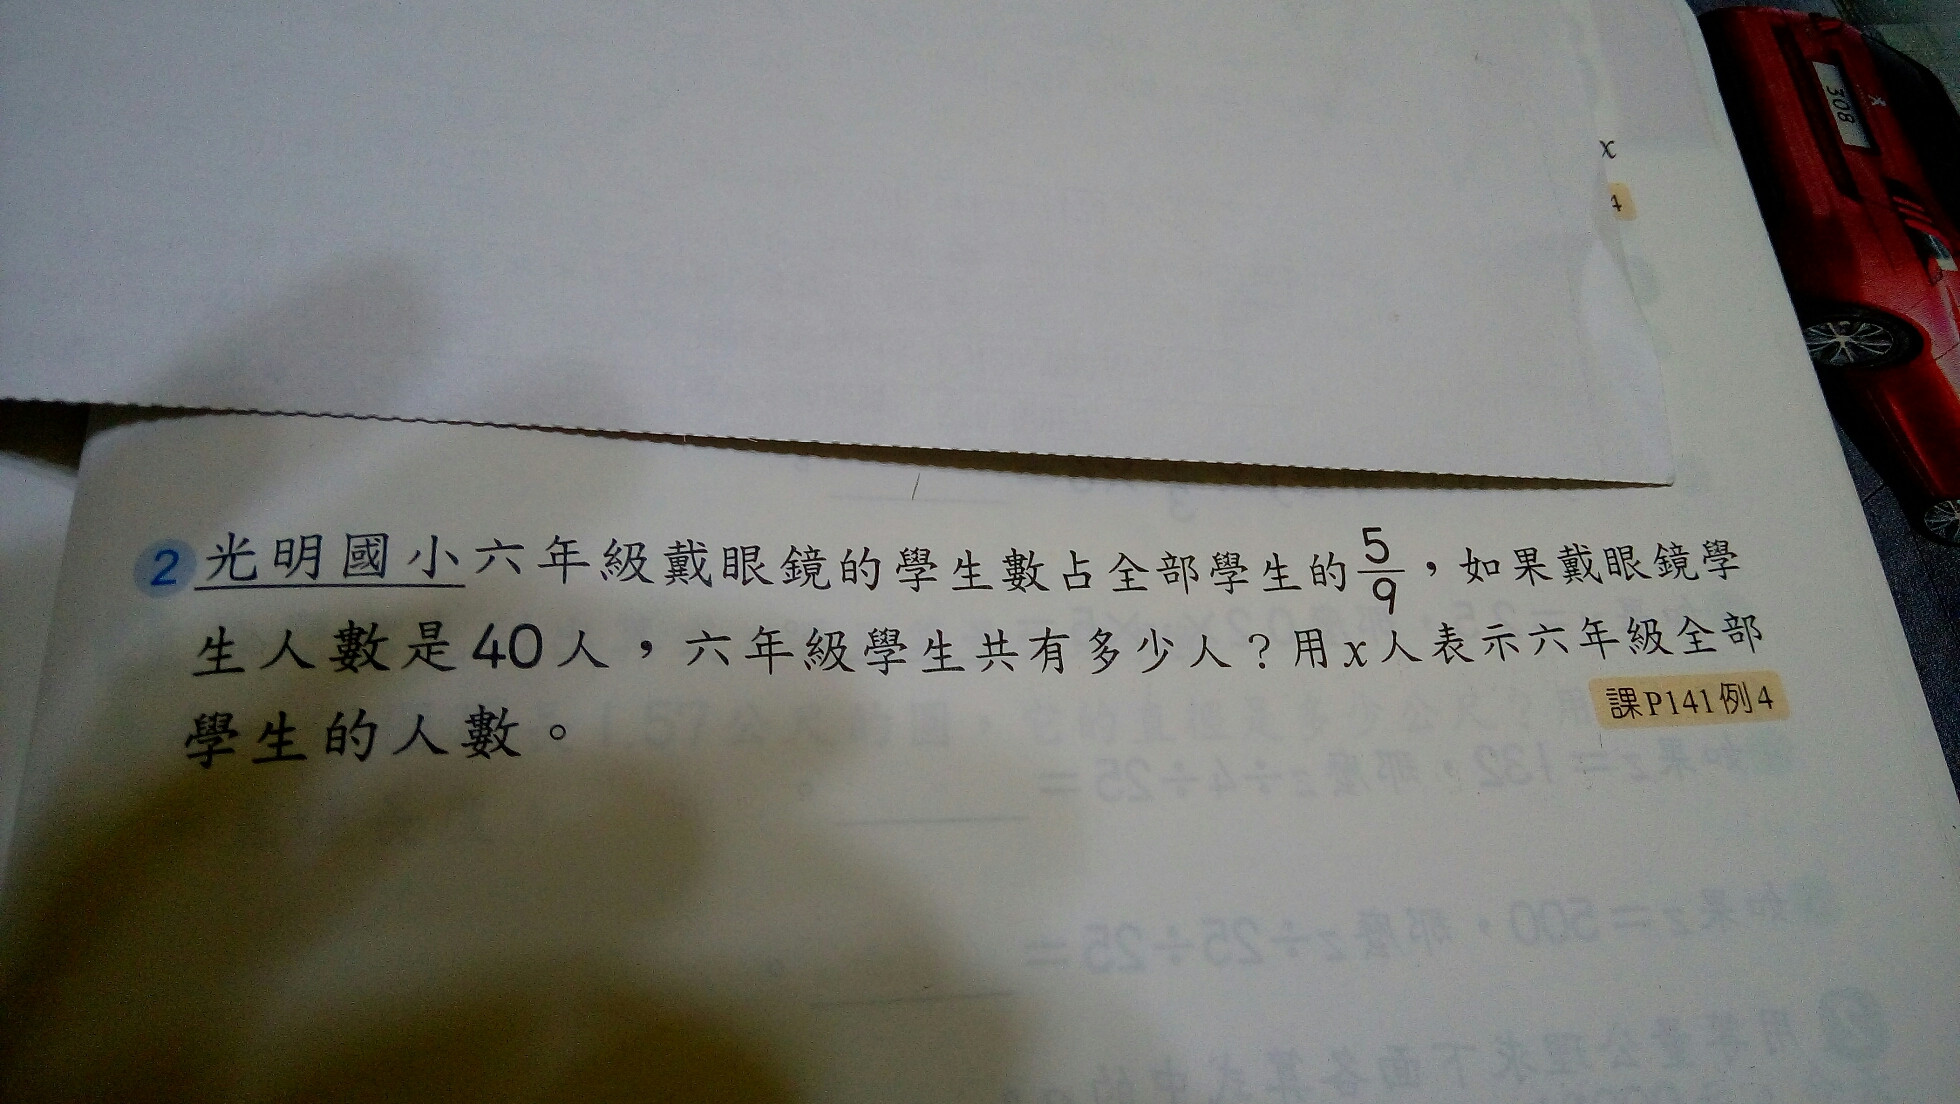 308
x
4
2 光明國小六年級戴眼鏡的學生數占全部學生的5/9，如果戴眼鏡學
生人數是40人，六年級學生共有多少人？用x人表示六年級全部
學生的人數。
課P141例4